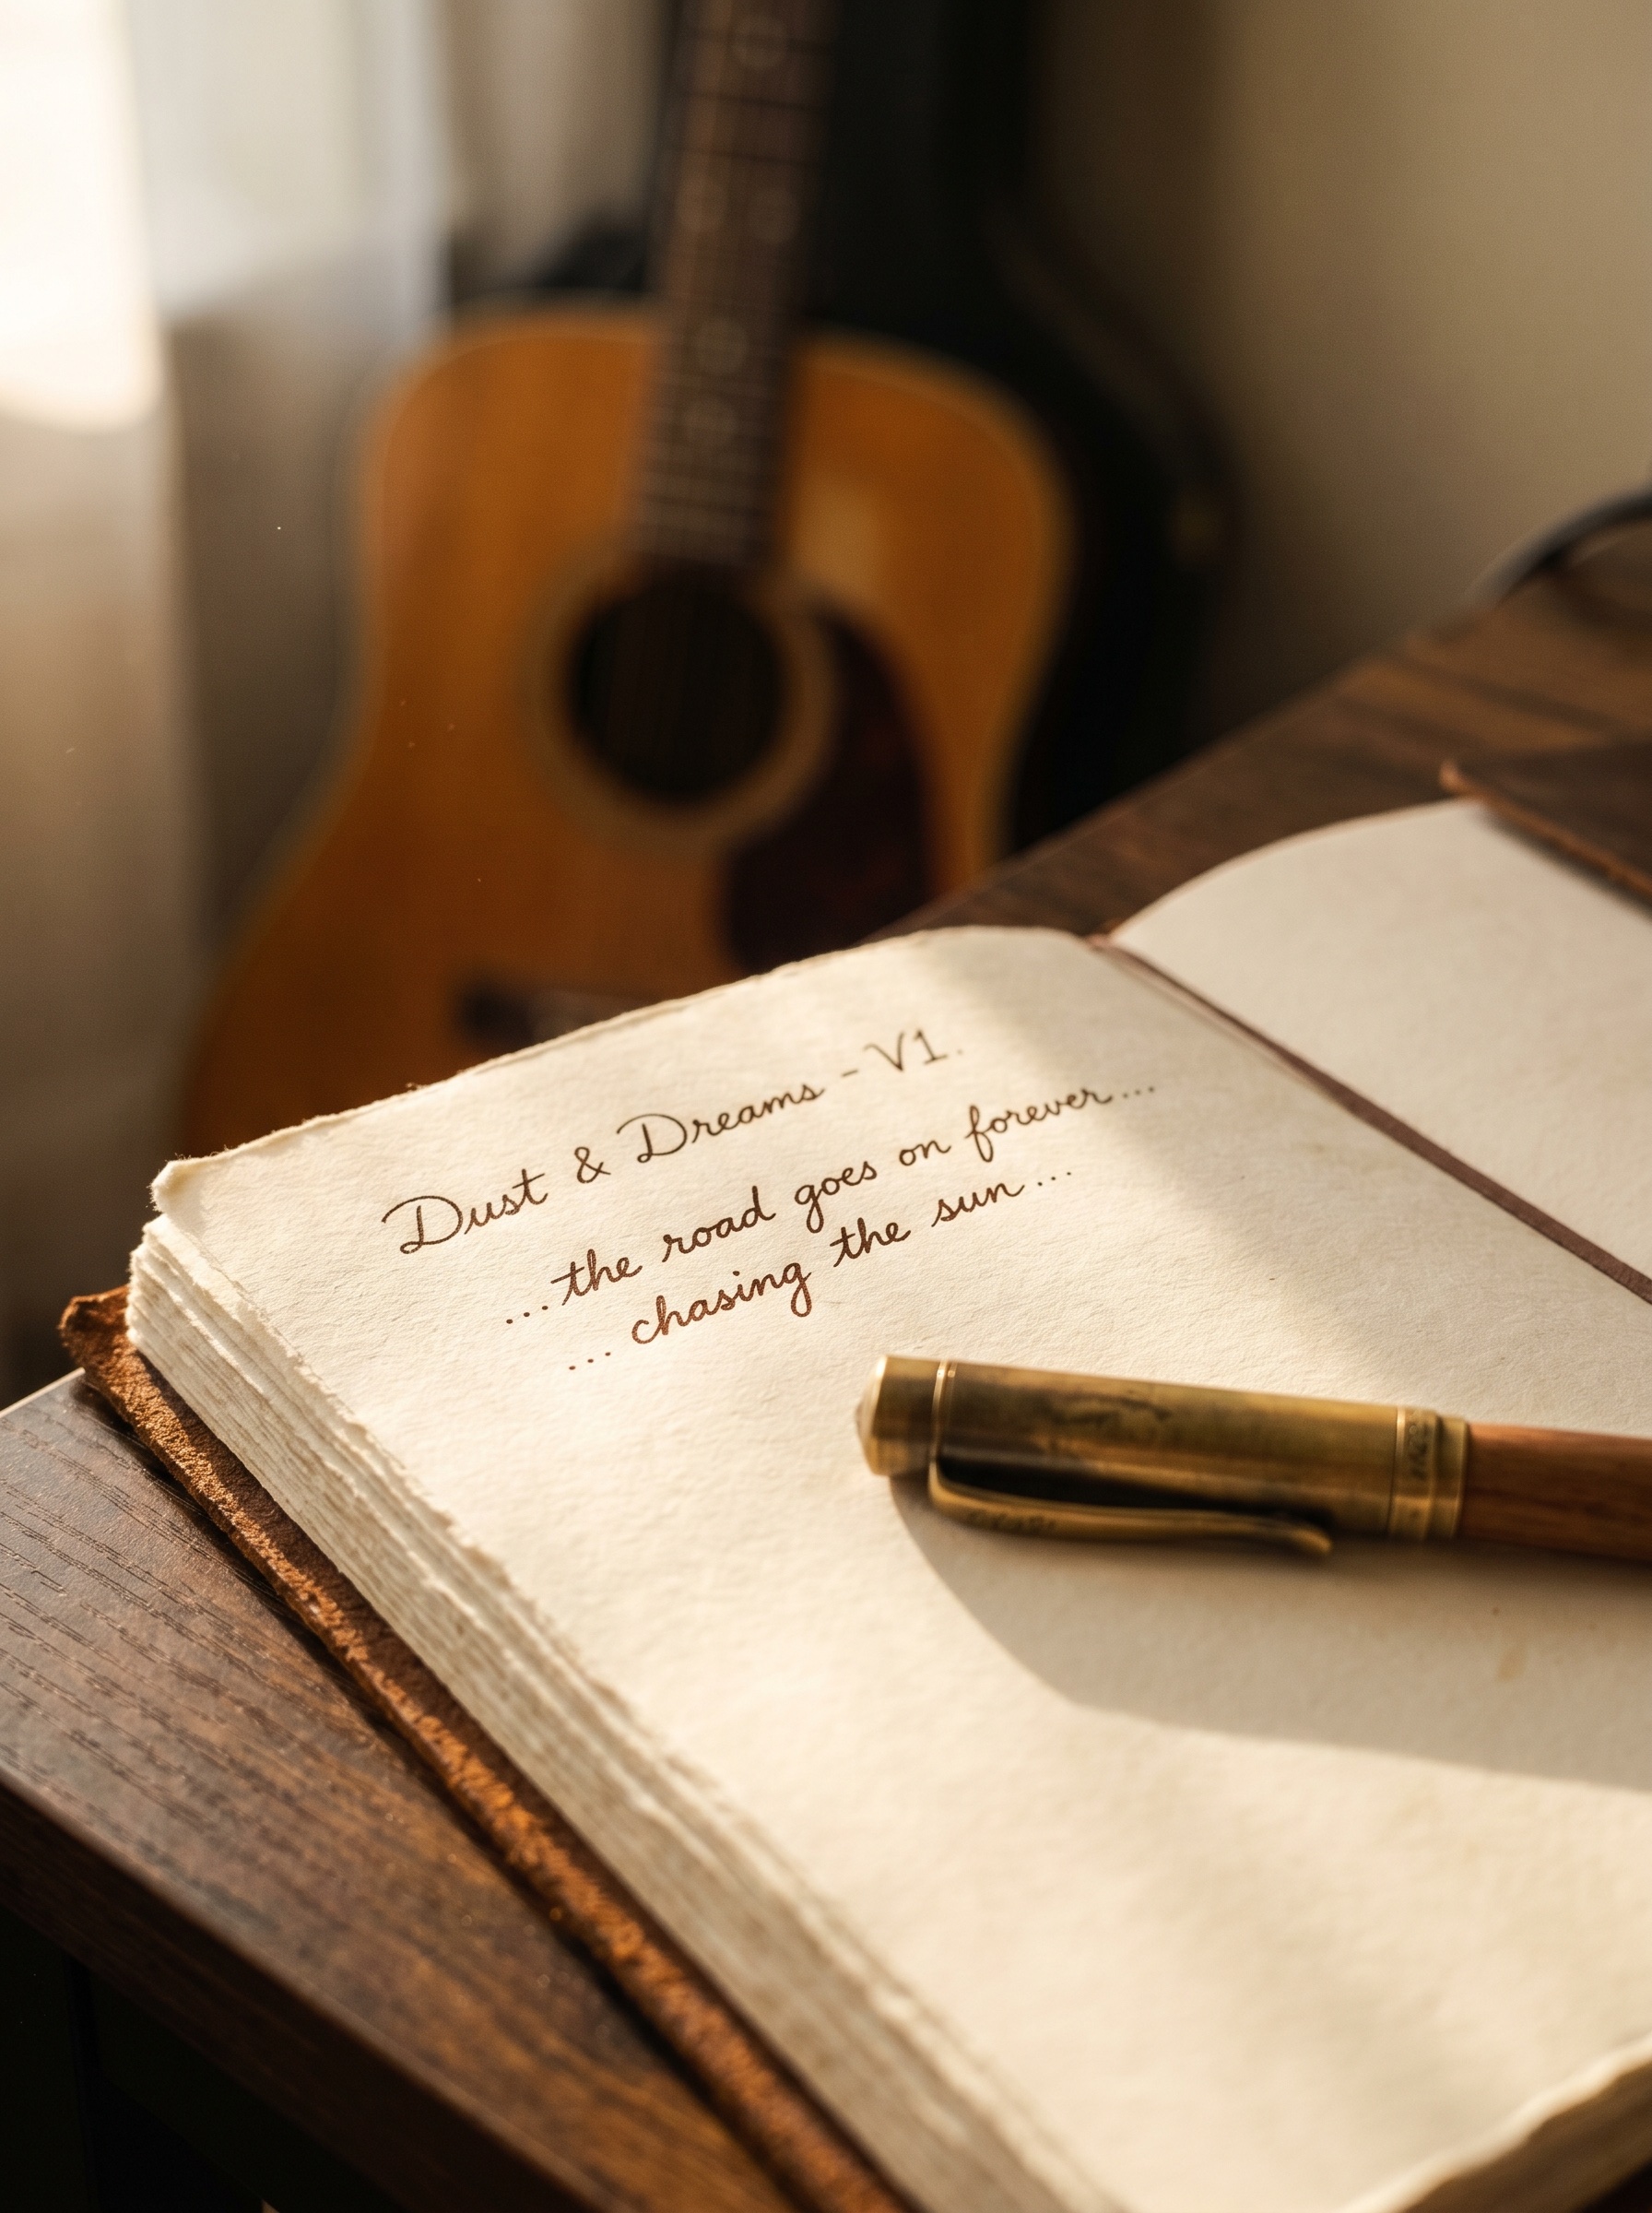 Dust & Dreams - V1.
...the road goes on forever...
...chasing the sun...